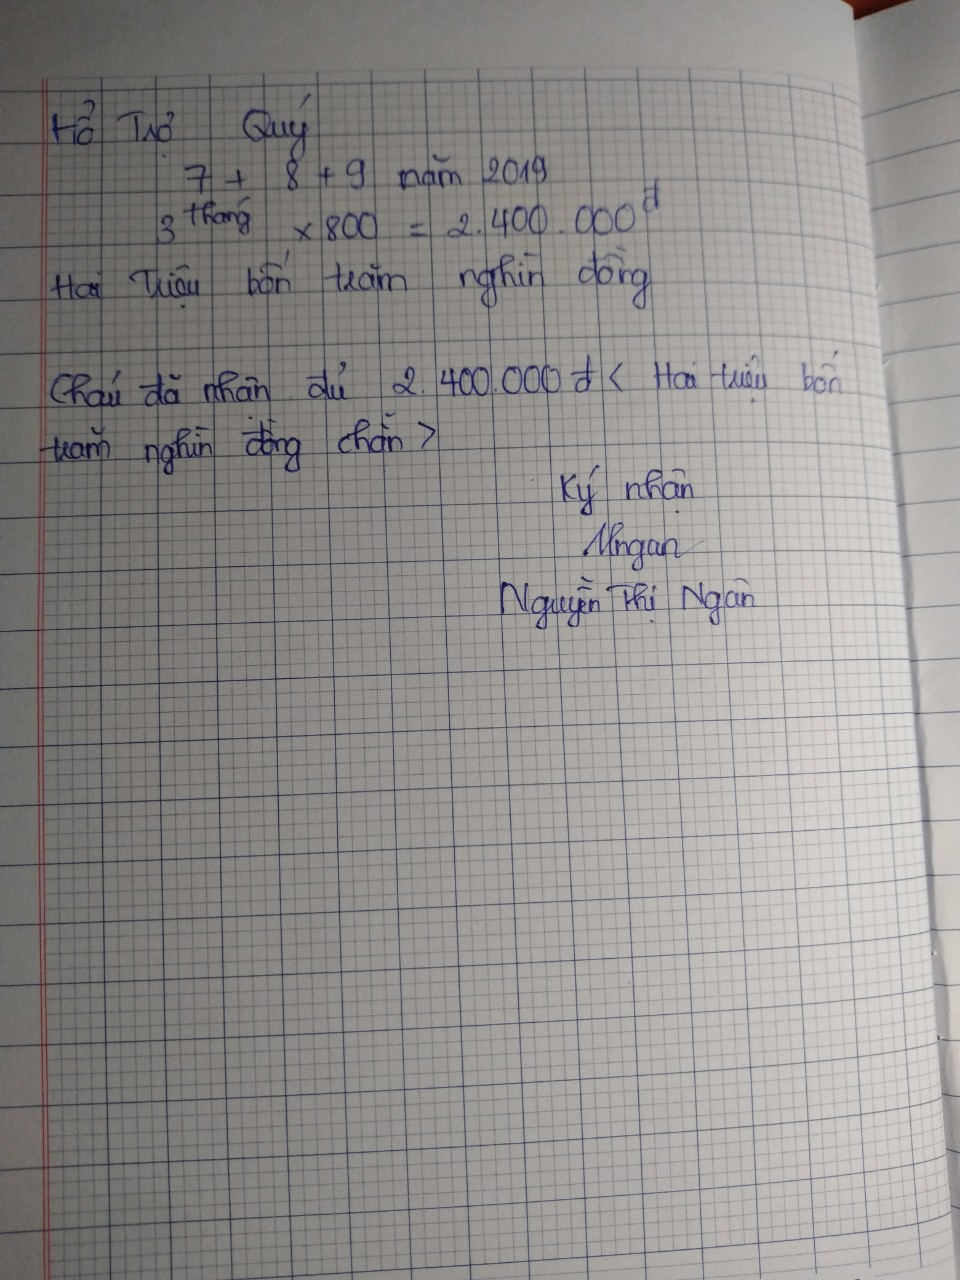 Hổ Trợ Quý
7 + 8 + 9 năm 2019
3 tháng x 800 = 2.400.000đ
Hai Triệu bốn trăm nghìn đồng
Cháu đã nhận đủ 2.400.000 đ < Hai triệu bốn
trăm nghìn đồng chẵn >
Ký nhận
Nguyễn Thị Ngân